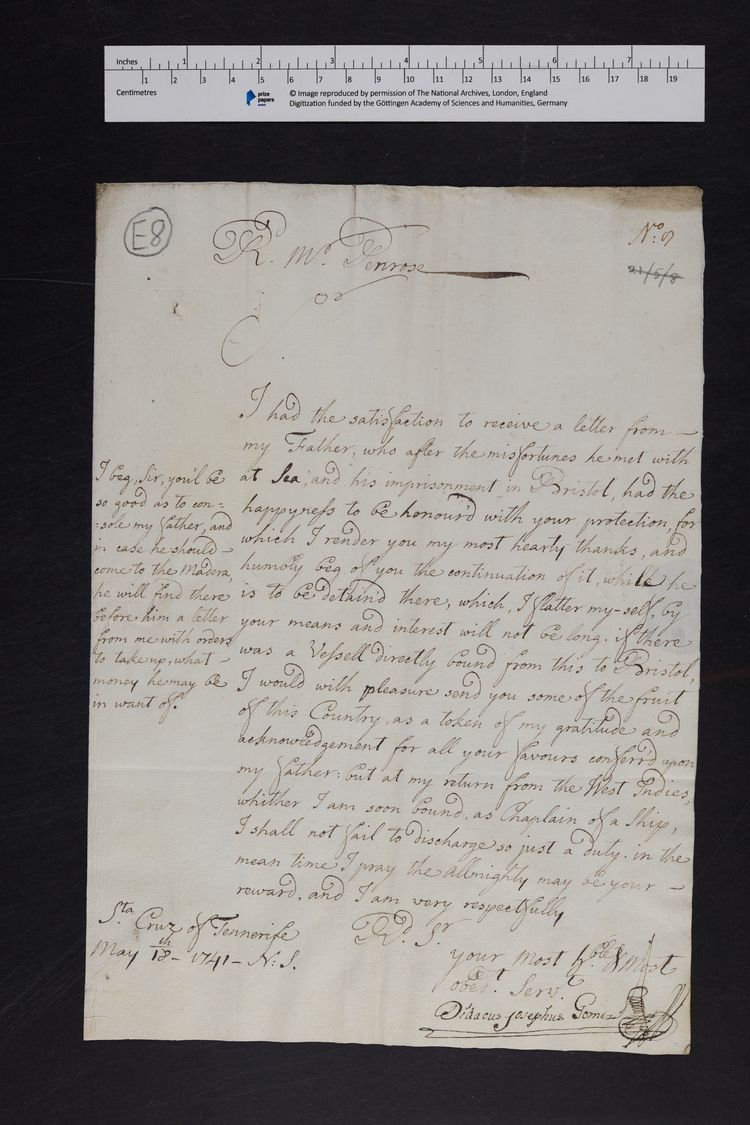 Inches 1 2 3 4 5 6 7
1 2 3 4 5 6 7 8 9 10 11 12 13 14 15 16 17 18 19
Centimetres
prize papers
© Image reproduced by permission of The National Archives, London, England
Digitization funded by the Göttingen Academy of Sciences and Humanities, Germany
E8
Rd. Mr. Penrose
No: 9
21/5/8
Sr
I had the satisfaction to receive a letter from
my Father, who after the misfortunes he met with
at Sea, and his imprisonment in Bristol, had the
happyness to be honour'd with your protection, for
which I render you my most hearty thanks, and
humbly beg of you the continuation of it, while he
is to be detain'd there, which, I flatter my-self, by
your means and interest will not be long. if there
was a Vessell directly bound from this to Bristol,
I would with pleasure send you some of the fruit
of this Country, as a token of my gratitude and
acknowledgement for all your favours conferr'd upon
my father: but at my return from the West Indies,
whither I am soon bound, as Chaplain of a Ship,
I shall not fail to discharge so just a duty. in the
mean time I pray the Allmighty may be your
reward, and I am very respectfully
Rd. Sr
your most hble & most
obedt. Servt
Didacus Josephus Gomez
I beg, Sir, you'l be
so good as to con=
=sole my father, and
in case he should
come to the Madera,
he will find there
before him a letter
from me with orders
to take up, what
money he may be
in want of.
Sta Cruz of Tennerife
May 18th - 1741 - N: S.